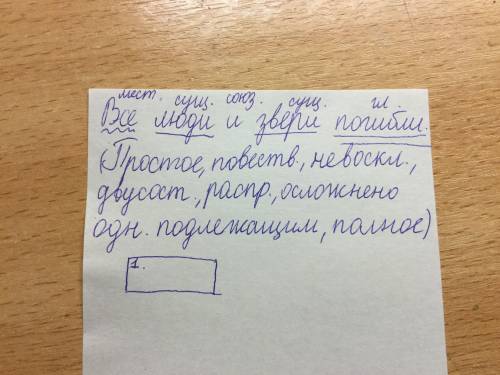 мест. сущ. союз. сущ. гл.
Все люди и звери погибли.
(Простое, повеств., невоскл.,
двусост., распр., осложнено
одн. подлежащим, полное)
1.